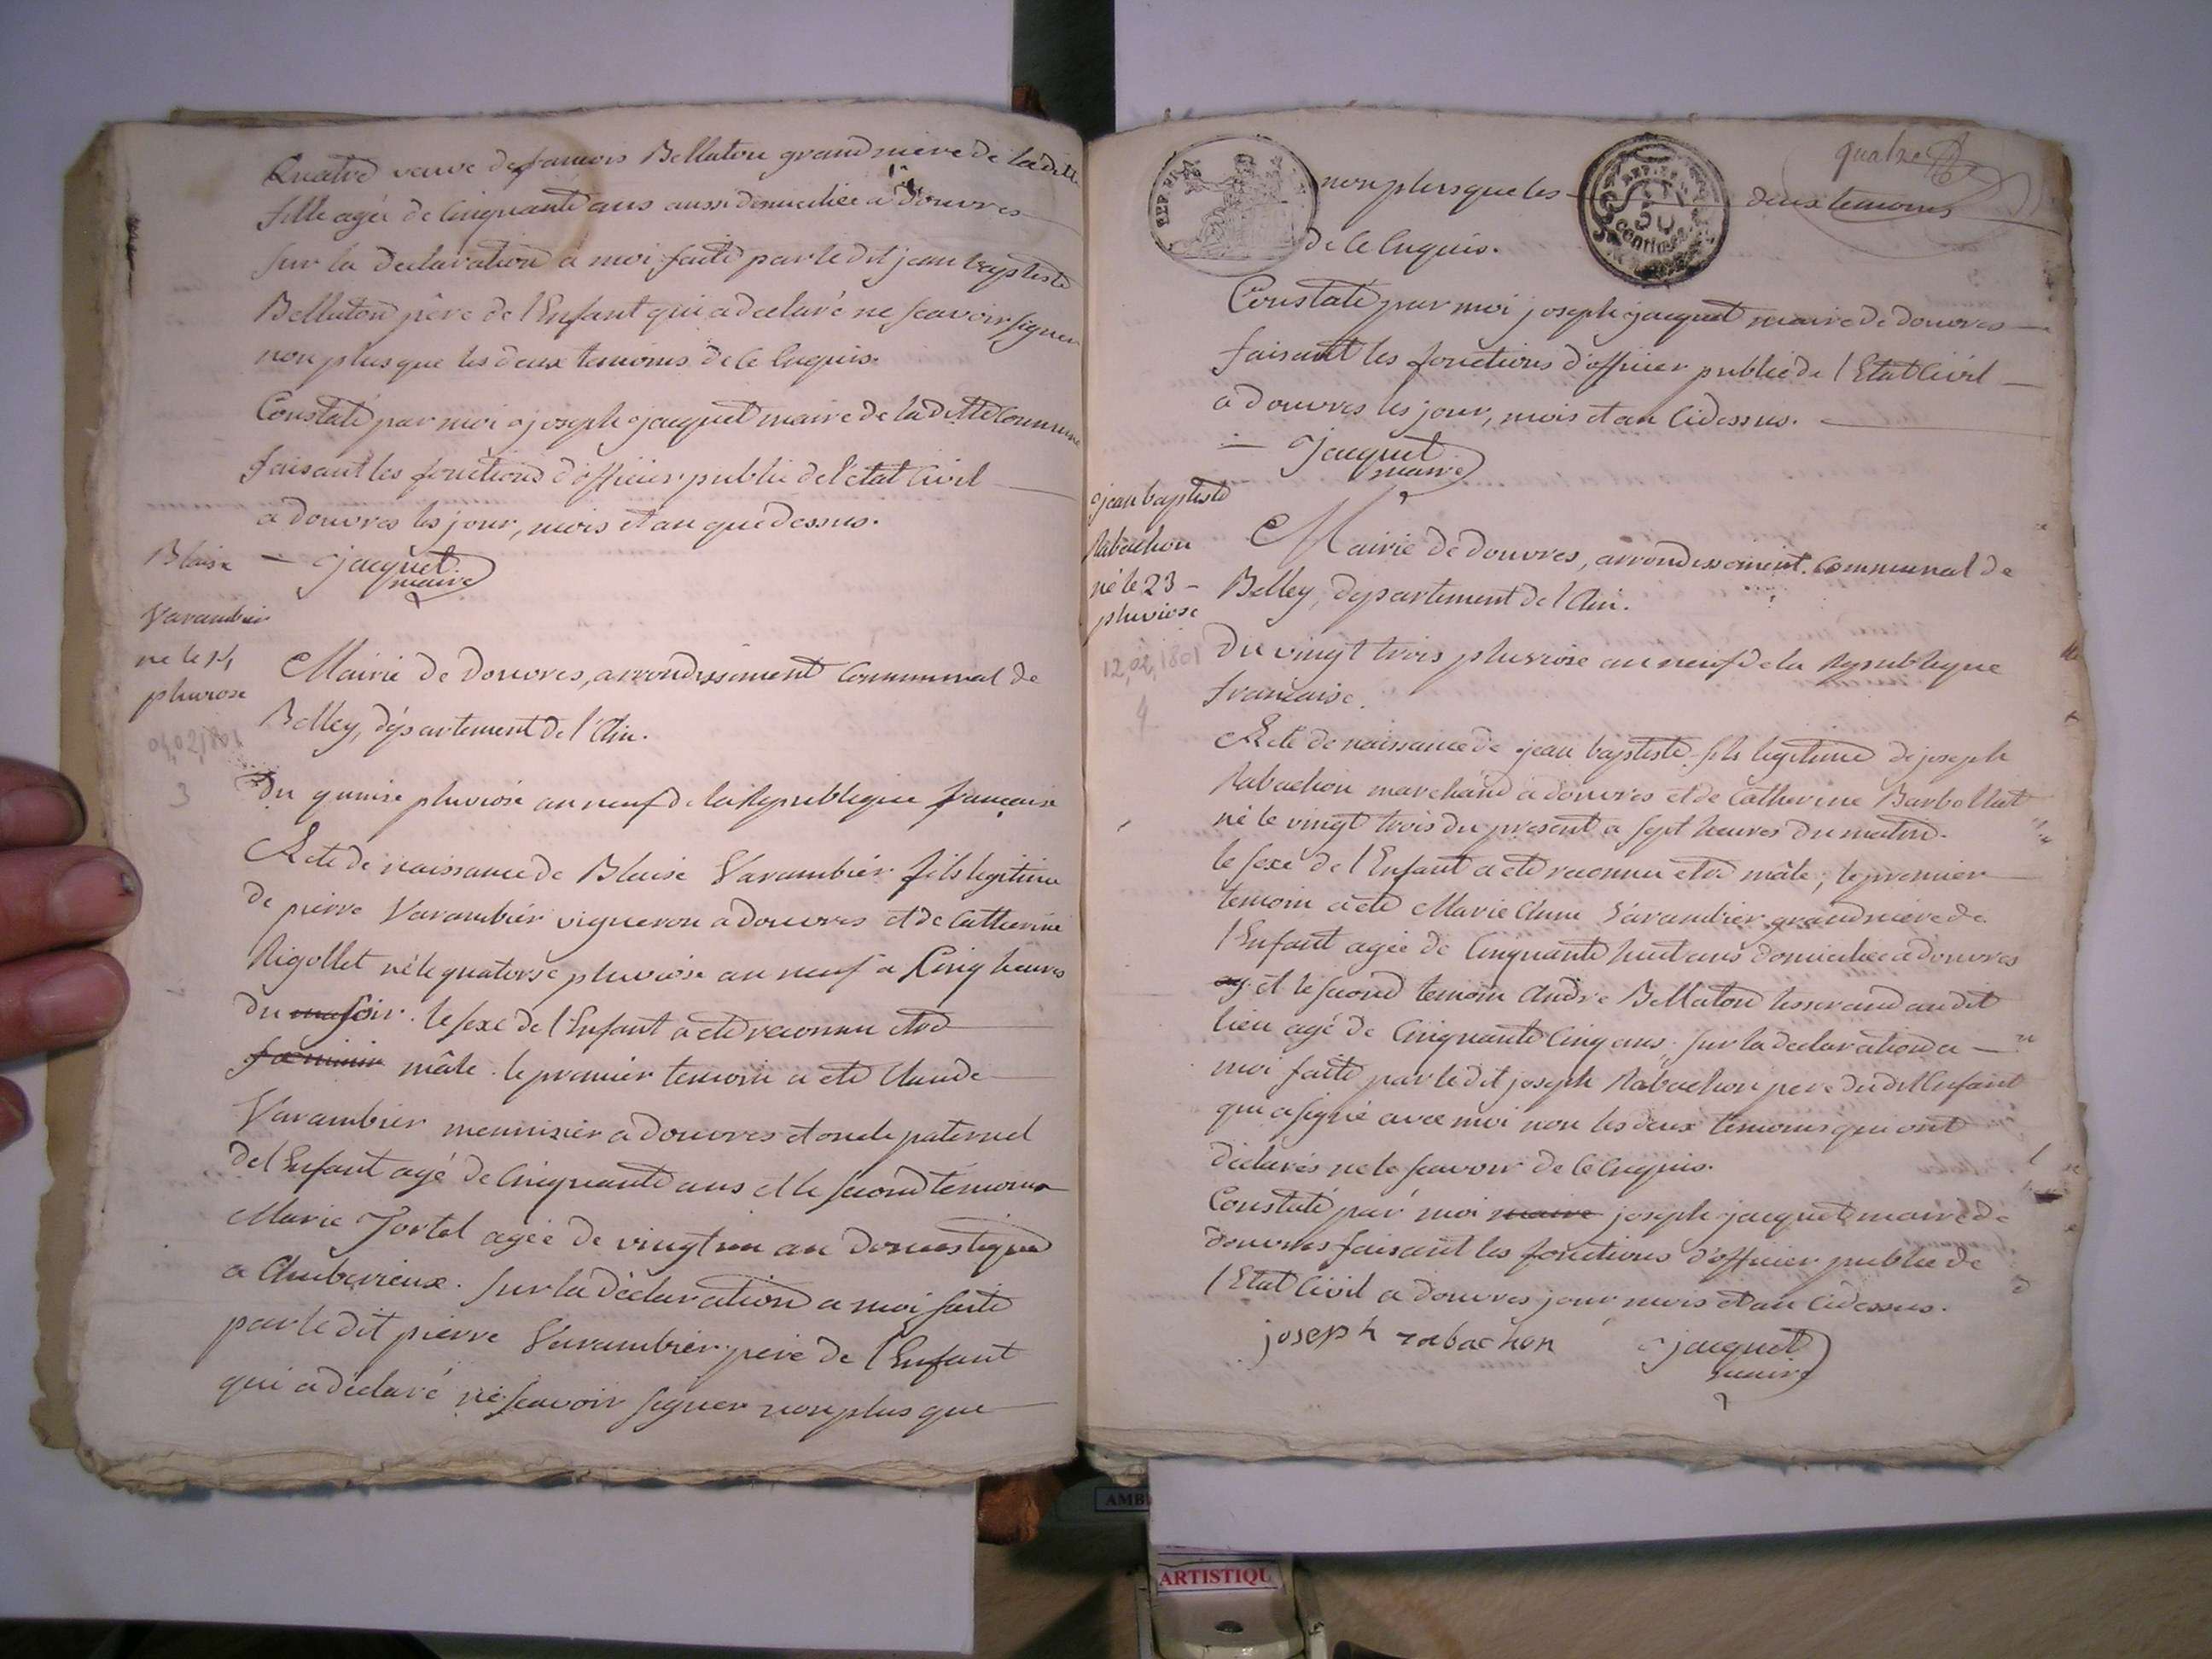 Quatre veuve de francois Bellaton grand mere de la ditte
fille agée de Cinquante ans aussi domiciliée a Douvres
sur la declaration a moi faite par le dit jean baptiste
Bellaton père de l'Enfant qui a declaré ne scavoir signer
non plus que les deux temoins de ce enquis.
Constaté par moi joseph jacquet maire de la ditte Commune
faisant les fonctions d'officier public de l'état Civil
a douvres les jour, mois et an que dessus.
jacquet
maire
Blaise
Varambier
né le 14
pluviose
3
Mairie de douvres, arrondissement Communal de
Belley, département de l'Ain.
Du quinse pluviose an neuf de la Republique francaise
Acte de naissance de Blaise Varambier fils legitime
de pierre Varambier vigneron a douvres et de Catherine
Rigollet né le quatorse pluviose an neuf a Cinq heures
du soir. le sexe de l'Enfant a eté reconnu etre
feminin mâle. le premier temoin a eté Claude
Varambier menuisier a douvres et oncle paternel
de l'Enfant agé de Cinquante ans et le second temoin
Marie Jortel agée de vingt un an domestique
a Ambérieux. sur la déclaration a moi faite
par le dit pierre Varambier père de l'Enfant
qui a déclaré ne scavoir signer non plus que
quatre
REP FRA
non plus que les deux temoins
50
centimes
de ce enquis.
Constaté par moi joseph jacquet maire de douvres
faisant les fonctions d'officier public de l'Etat Civil
a douvres les jour, mois et an Cidessus.
jacquet
maire
jean baptiste
Rabachon
né le 23
pluviose
12,02,1801
4
Mairie de douvres, arrondissement Communal de
Belley, département de l'Ain.
Du vingt trois pluviose an neuf de la Republique
francaise.
Acte de naissance de jean baptiste fils legitime de joseph
Rabachon marchand a douvres et de Catherine Barbollat
né le vingt trois du present a sept heures du matin.
le sexe de l'Enfant a eté reconnu etre mâle; le premier
temoin a eté Marie Anne Varambier grand mere de
l'Enfant agée de Cinquante huit ans domiciliée a douvres
ag et le second temoin André Bellaton tisserand au dit
lieu agé de Cinquante Cinq ans; sur la declaration a
moi faite par le dit joseph Rabachon pere du dit Enfant
qui a signé avec moi non les deux temoins qui ont
déclarés ne le scavoir de ce enquis.
Constaté par moi maire joseph jacquet maire de
douvres faisant les fonctions d'officier public de
l'Etat Civil a douvres jour mois et an Cidessus.
joseph rabachon jacquet
maire
AMB
ARTISTIQU